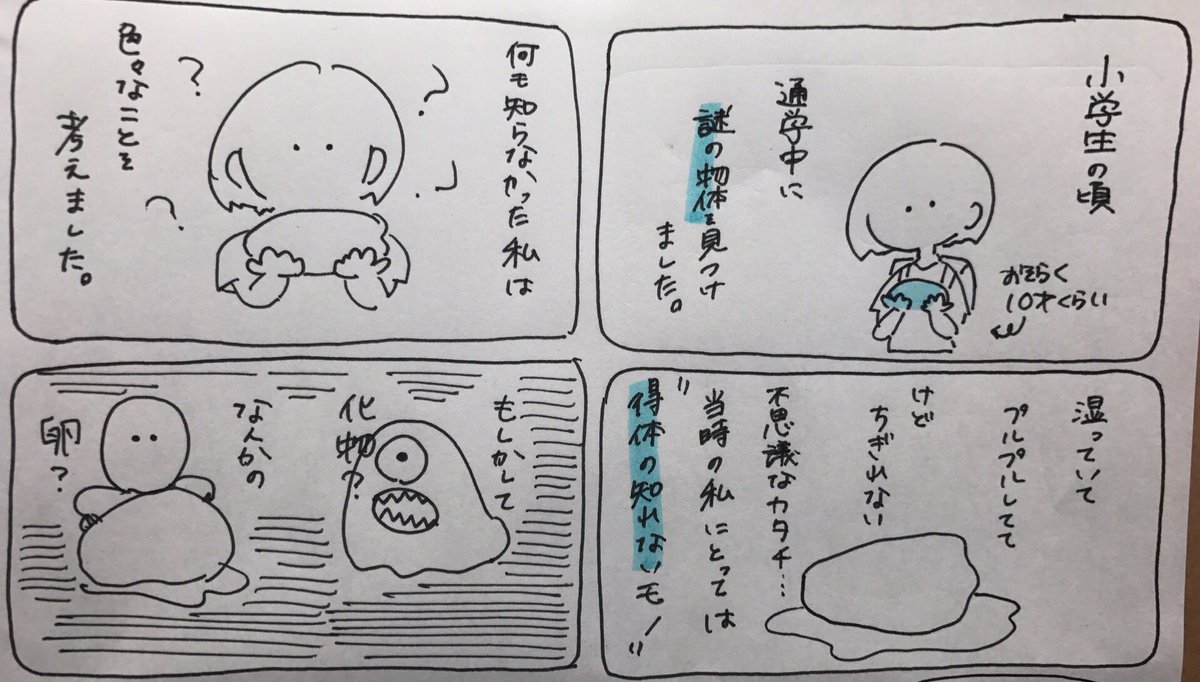 小学生の頃
通学中に
謎の物体を見つけ
ました。
おそらく
10才くらい
湿っていて
プルプルしてて
ちぎれない
けど
不思議なカタチ…
当時の私にとっては
"得体の知れないモノ"
何も知らなかった私は
色々なことを
考えました。
?
?
?
もしかして
化物?
なんかの
卵?